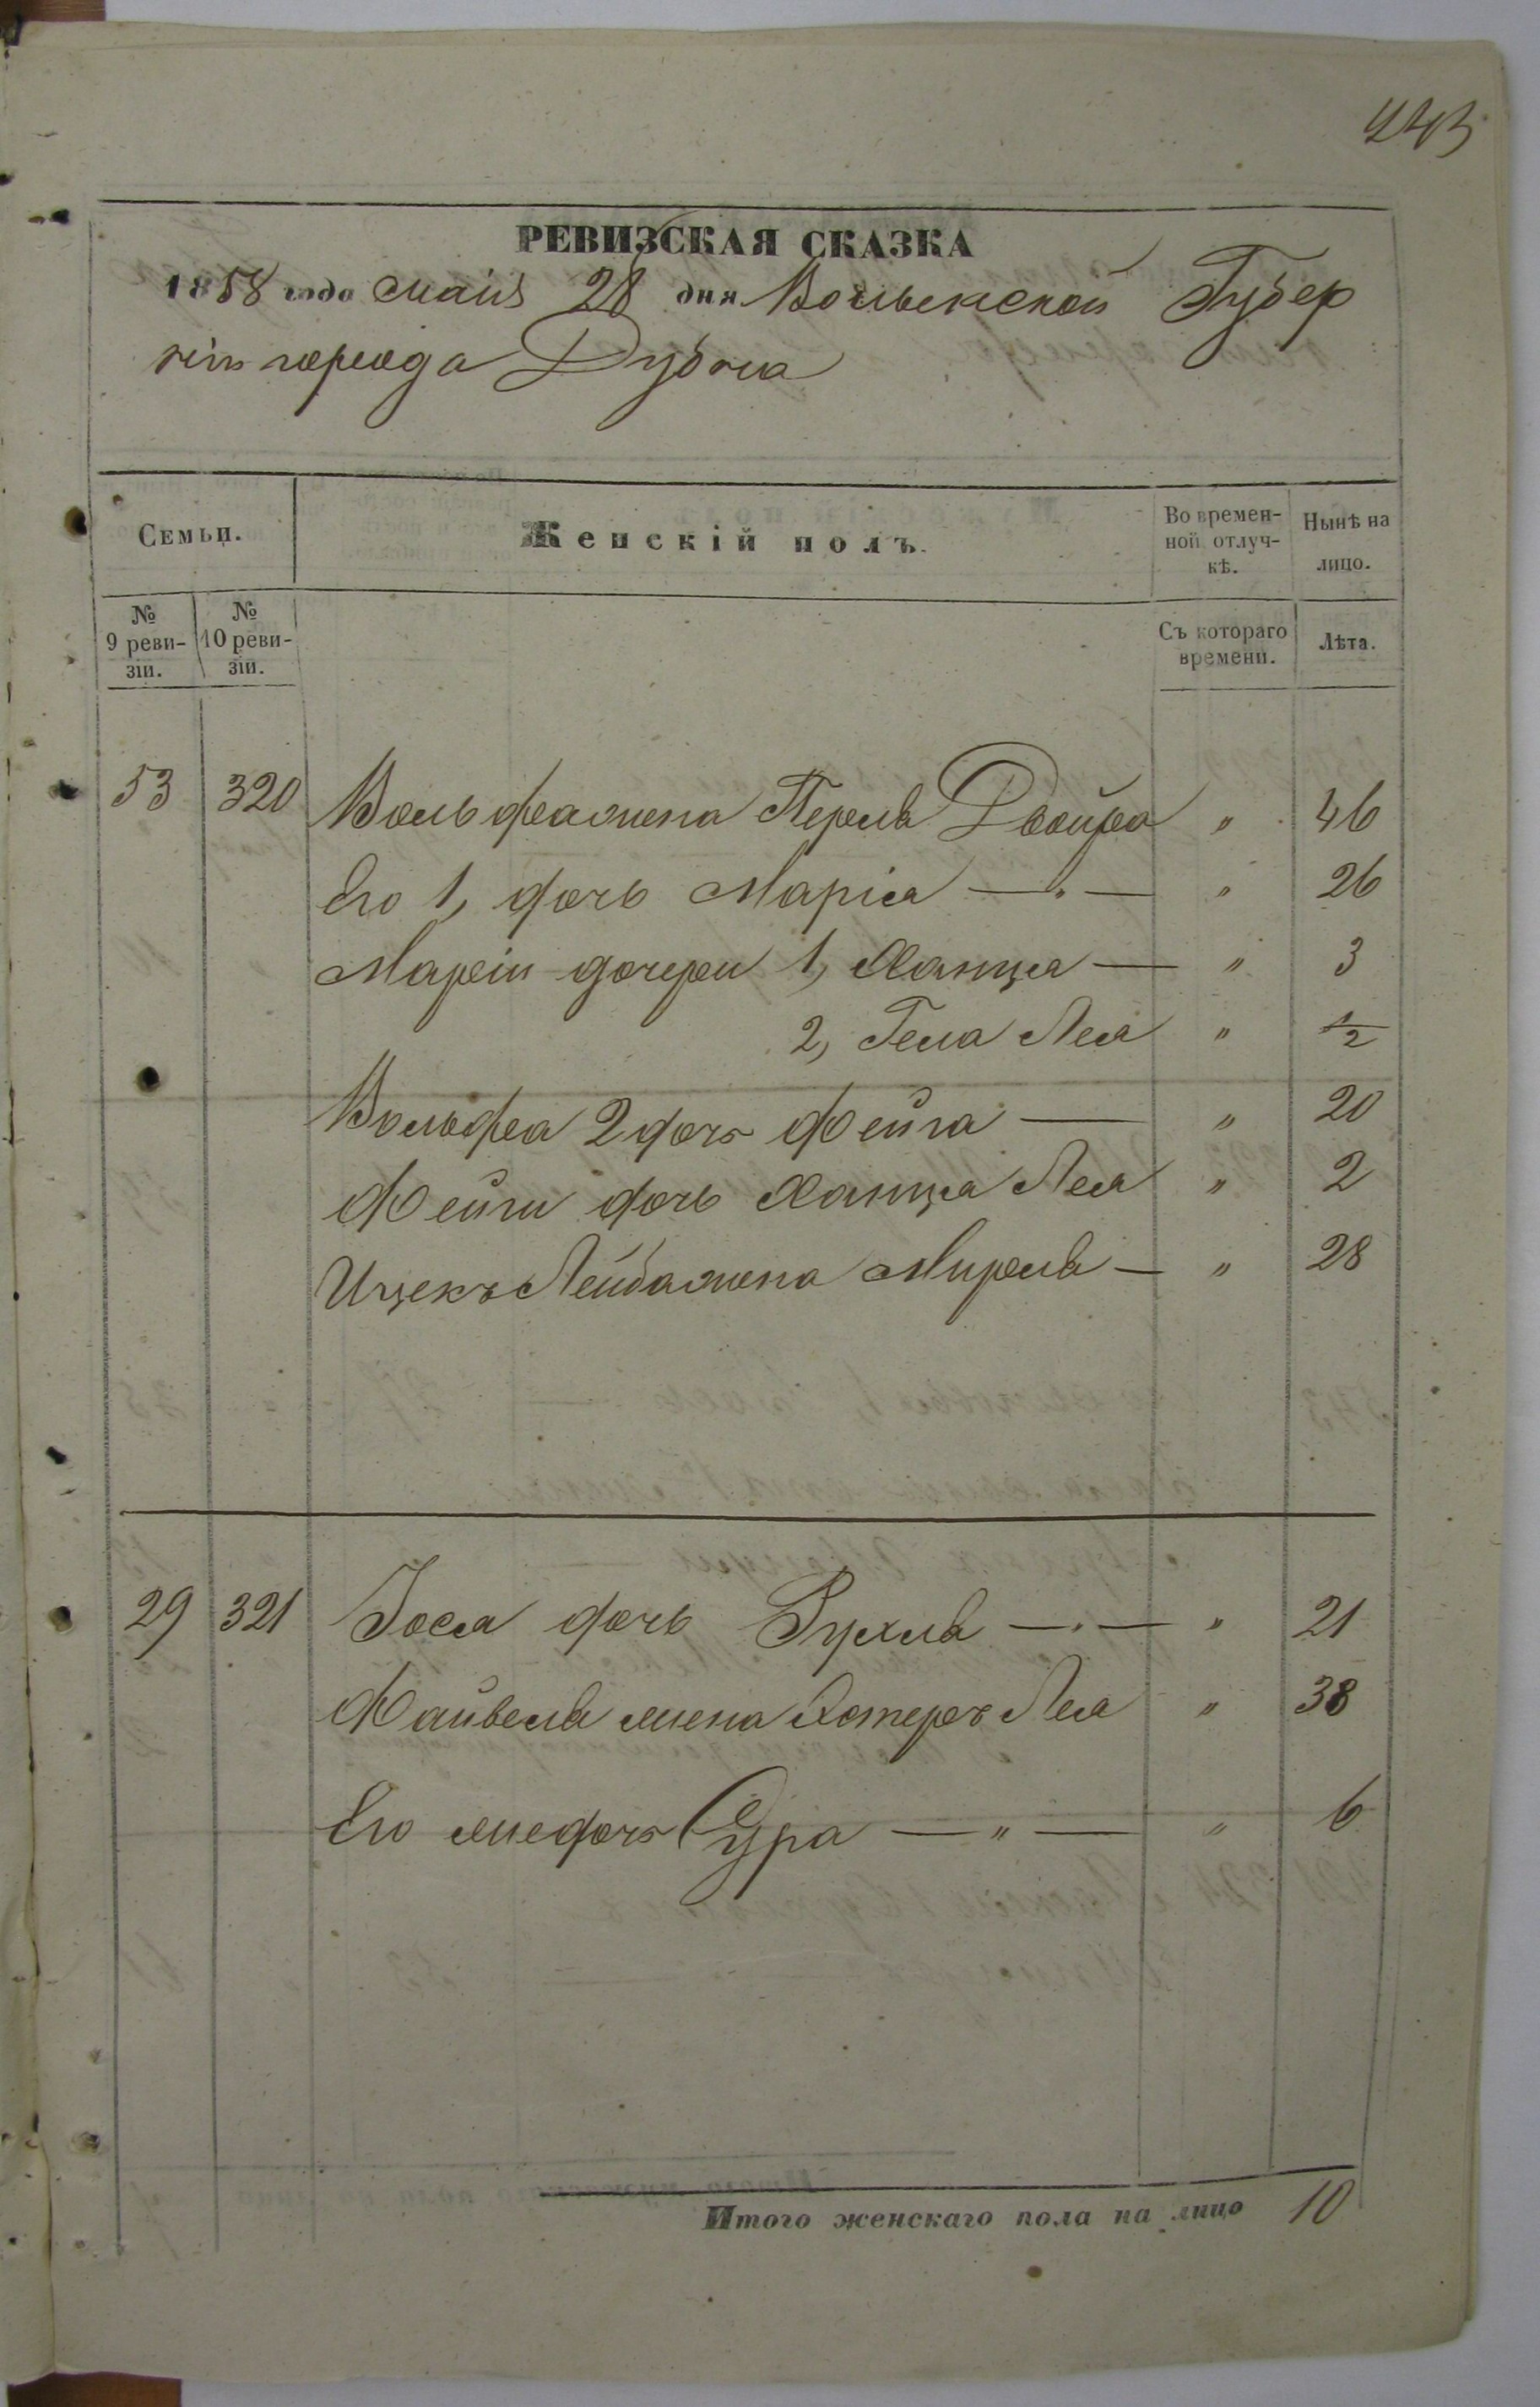 243
РЕВИЗСКАЯ СКАЗКА
1858 года маія 28 дня Волынской Губер
ніи города Дубна
Семьи.
Женскій полъ.
Во времен-
ной отлуч-
кѣ.
Нынѣ на
лицо.
№
9 реви-
зіи.
№
10 реви-
зіи.
Съ котораго
времени.
Лѣта.
53 320 Вольфа жена Перля Двойра " 46
Его 1, дочь Марія — " — " 26
Маріи дочери 1, Ханца — " 3
2, Гела Лея " 1/2
Вольфа 2 дочь Фейга — " 20
Фейги дочь Ханца Лея " 2
Ицекъ Лейба жена Мирля — " 28
29 321 Іося дочь Рухля — " — " 21
Файвеля жена Хстеръ Лея " 38
Его же дочь Сура — " — " 6
Итого женскаго пола на лицо 10